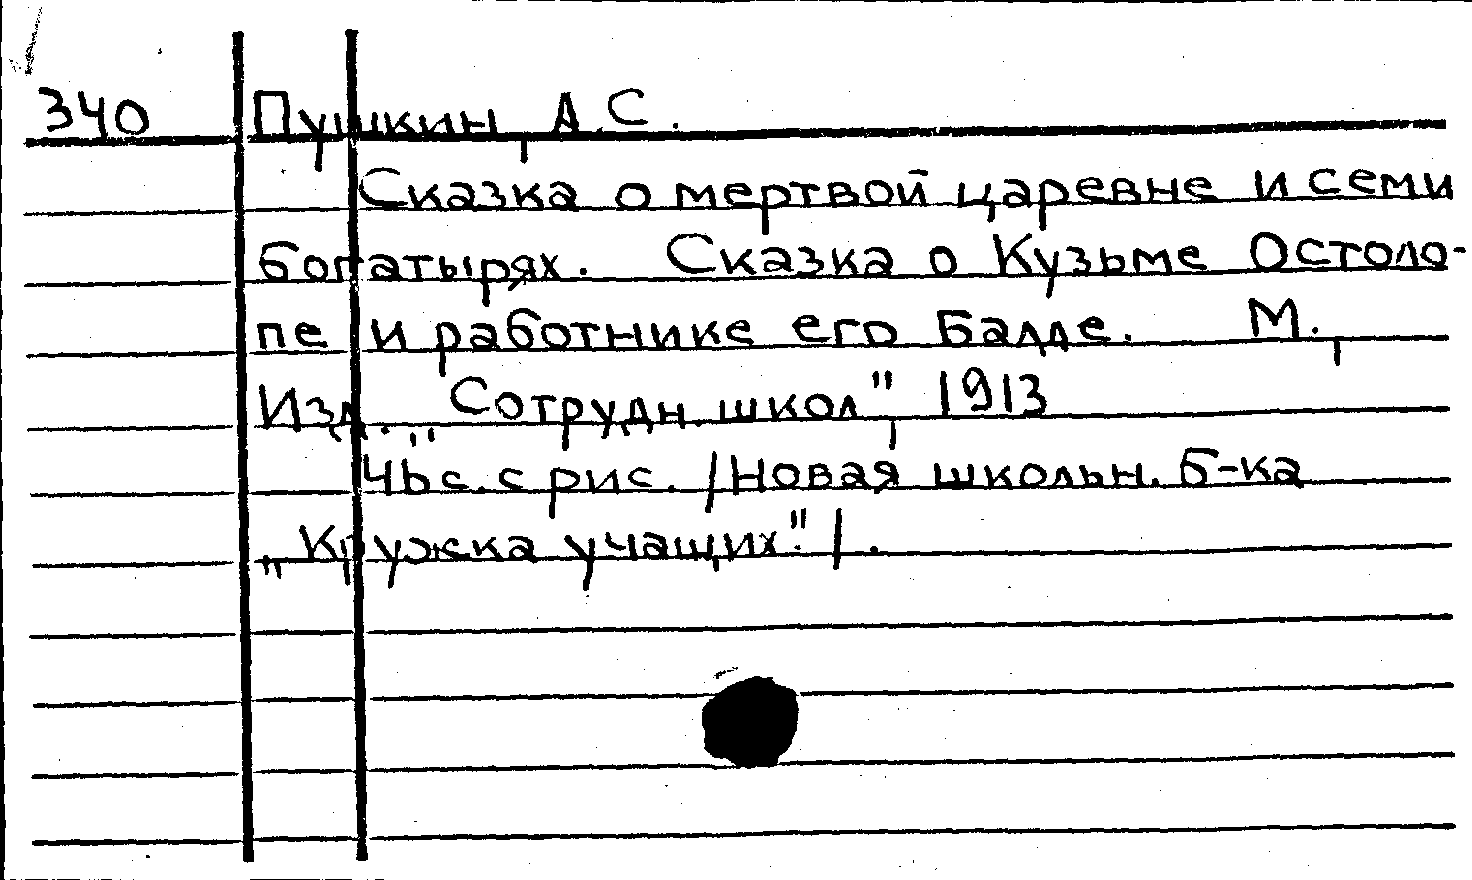 340 Пушкин, А.С.
Сказка о мертвой царевне и семи
богатырях. Сказка о Кузьме Остоло-
пе и работнике его Балде. М.,
Изд. „Сотрудн. школ", 1913
4bс. с рис. /Новая школьн. б-ка
„Кружка учащих"./.